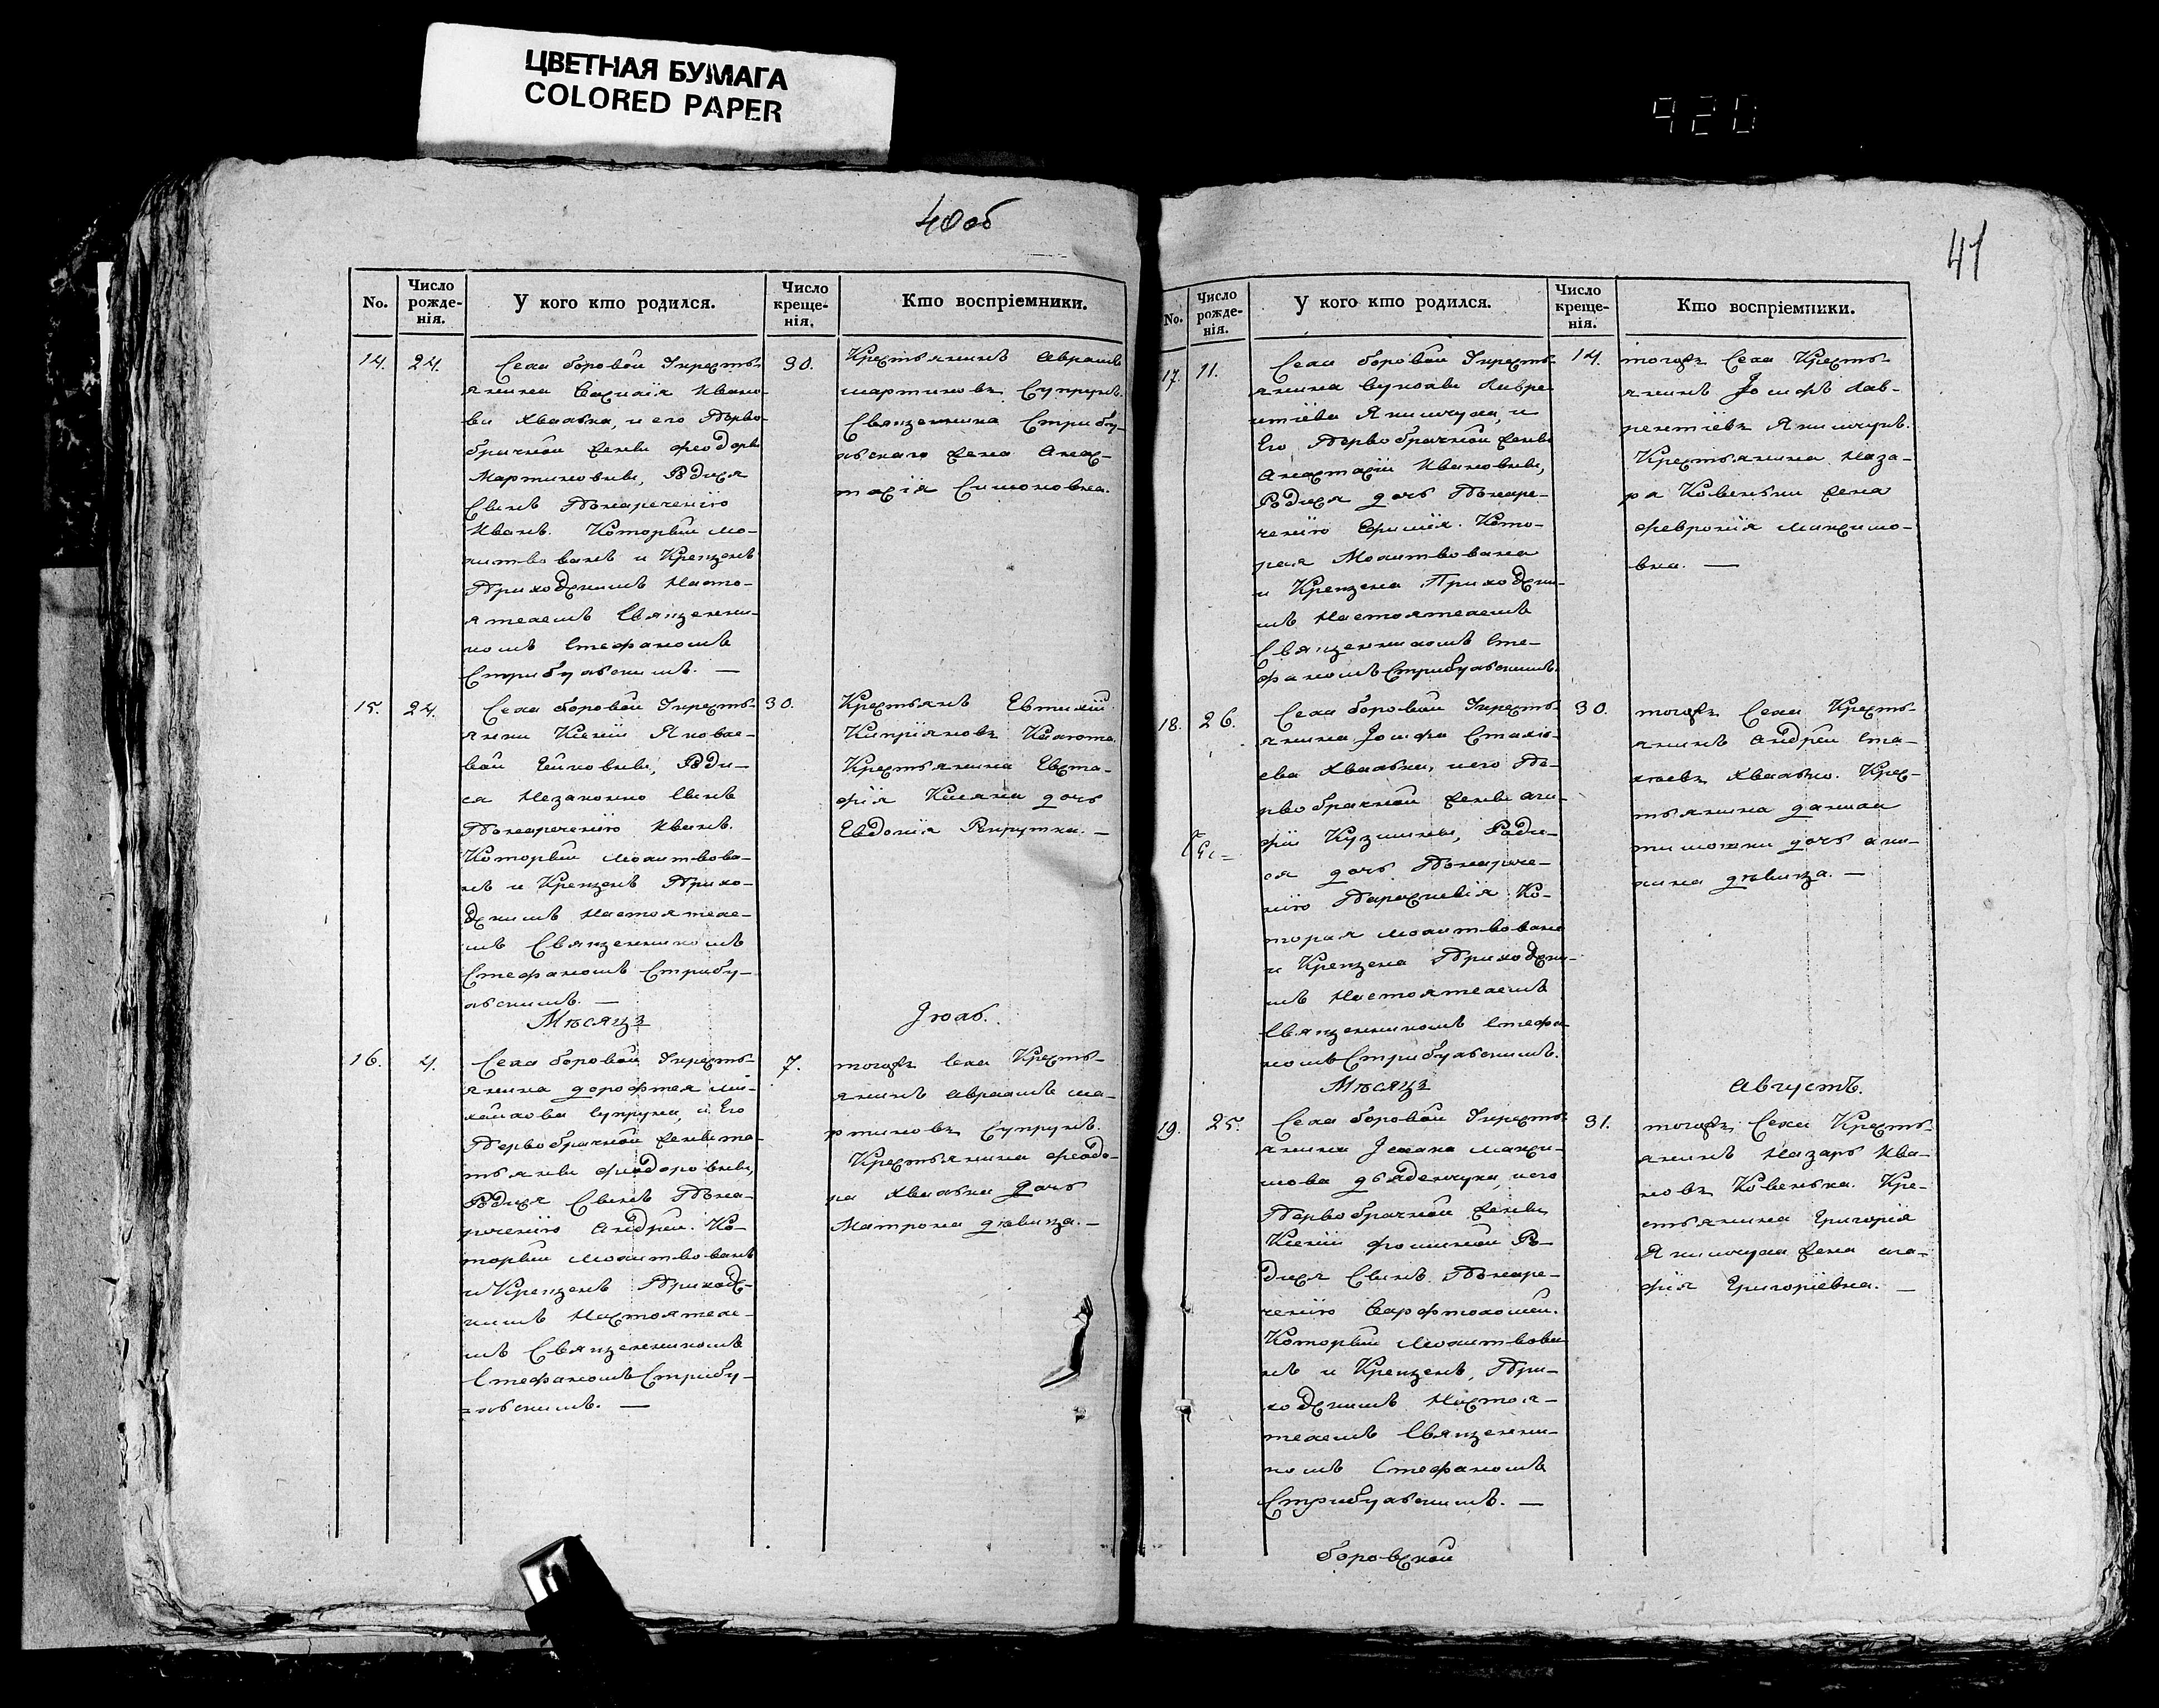 ЦВЕТНАЯ БУМАГА
COLORED PAPER
920
40об
No.
Число рожденія.
У кого кто родился.
Число крещенія.
Кто воспріемники.
14.
24.
Села боровой Укресть-
янина Василія Ивано-
ви Хвалька, и его Перво-
брачной жены феодоры
Мартиновны, Родися
Сынъ Понареченію
Иванъ. Который мо-
литвованъ и Крещенъ
Приходскимъ Насто-
ятелемъ Священни-
комъ Стефаномъ
Стрибульскимъ. —
30.
Крестьянинъ Авраамъ
мартиновъ Супрунъ.
Священника Стрибу-
льскаго жена Анас-
тасія Симоновна.
15.
24.
Села боровой Укресть-
янки Ксеніи Яковле-
вой, Роди-
ся Незаконно Сынъ
Понареченію Иванъ.
Который молитвова-
нъ и Крещенъ Прихо-
дскимъ Настояте-
мъ Священникомъ
Стефаномъ Стрибу-
льскимъ. —
30.
Крестьянъ Евтихій
Кипріяновъ
Крестьянина Евста-
фія дочь
Евдокія —
Мѣсяцъ
Іюль.
16.
4.
Села боровой Укресть-
янина дорофтея ми-
хайлова Супруна, и Его
Первобрачной жены та-
тьяны феодоровны,
Родися Сынъ Пона-
реченію Андрей. Ко-
торый молитвованъ
и Крещенъ Приход-
скимъ Настояте-
мъ Священникомъ
Стефаномъ Стрибу-
льскимъ. —
7.
тогожъ Села Кресть-
янинъ Авраамъ ма-
ртиновъ Супрунъ.
Крестьянина феодо-
ра Хвалька Дочь
Матрона дѣвица. —
41
No.
Число рожденія.
У кого кто родился.
Число крещенія.
Кто воспріемники.
17.
11.
Села боровой Укресть-
янина Лавре-
нтіева Якимчука, и
Его Первобрачной жены
Анастасіи Ивановны,
Родися дочь Понаре-
ченію Ефимія. Кото-
рая Молитвована
и Крещена Приходски-
мъ Настоятелемъ
Священникомъ Сте-
фаномъ Стрибульскимъ.
14.
тогожъ Села Кресть-
янинъ Іосифъ Лав-
рентіевъ Якимчукъ.
Крестьянина Наза-
ра Ковеньки жена
феvронія Максимо-
вна. —
18.
26.
Села боровой Укресть-
янина Іосифа
Хвальки, и его Пе-
рвобрачной жены Ага-
фіи Кузминны, Роди-
ся дочь Понарече-
нію Параскевія Ко-
торая молитвована
и Крещена Приходски-
мъ Настоятелемъ
Священникомъ Стефа-
номъ Стрибульскимъ.
30.
тогожъ Села Кресть-
янинъ Андрей
Хвалько. Крес-
тьянина данила
тимошки дочь аки-
лина дѣвица. —
Мѣсяцъ
Августъ.
19.
25.
Села боровой Укресть-
янина макси-
мова дьяденчука, и его
Первобрачной жены
Ксеніи фоминой Ро-
дися Сынъ Понаре-
ченію Варфтоломей.
Который Молитвова-
нъ и Крещенъ, При-
ходскимъ Настоя-
телемъ Священни-
комъ Стефаномъ
Стрибульскимъ. —
31.
тогожъ Села Кресть-
янинъ Назаръ Ива-
новъ Ковенька. Кре-
стьянина Григорія
Якимчука жена ага-
фія Григоріевна. —
боровской